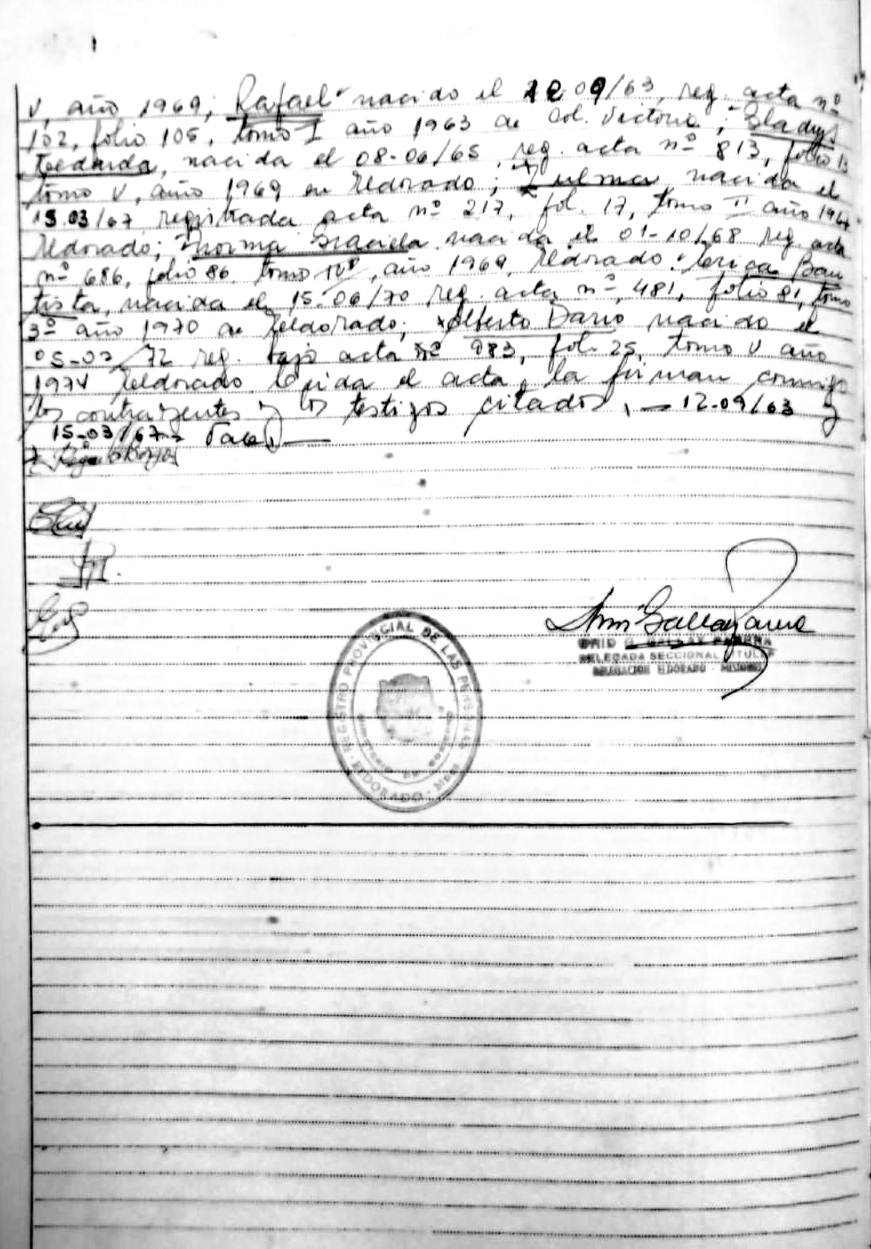 V, año 1969; Rafael nacido el 12.09/63, reg. acta nº
102, folio 105, tomo I año 1963 de Col. Victoria; Gladys
nacida el 08-06/65, reg. acta nº 813, folio 13
tomo V, año 1969 en Eldorado; Zulma nacida el
15.03/67 registrada acta nº 217, fol. 17, tomo II año 1967
Eldorado; Norma Graciela nacida el 01-10/68 reg. acta
nº 686, folio 86 tomo IVº, año 1969, Eldorado.
nacida el 15-06/70 reg. acta nº 481, folio 81, tomo
3º año 1970 de Eldorado; Alberto Dario nacido el
05-02/72 reg. bajo acta nº 983, fol. 25, tomo V año
1974 Eldorado. Leída el acta, la firman conmigo
los contrayentes y los testigos citados. — 12-09/63 y
15-03/67 Vale. —
REGISTRO PROVINCIAL DE LAS PERSONAS
ELDORADO - Mnes
DELEGADA SECCIONAL TITULAR
DELEGACION ELDORADO - MISIONES